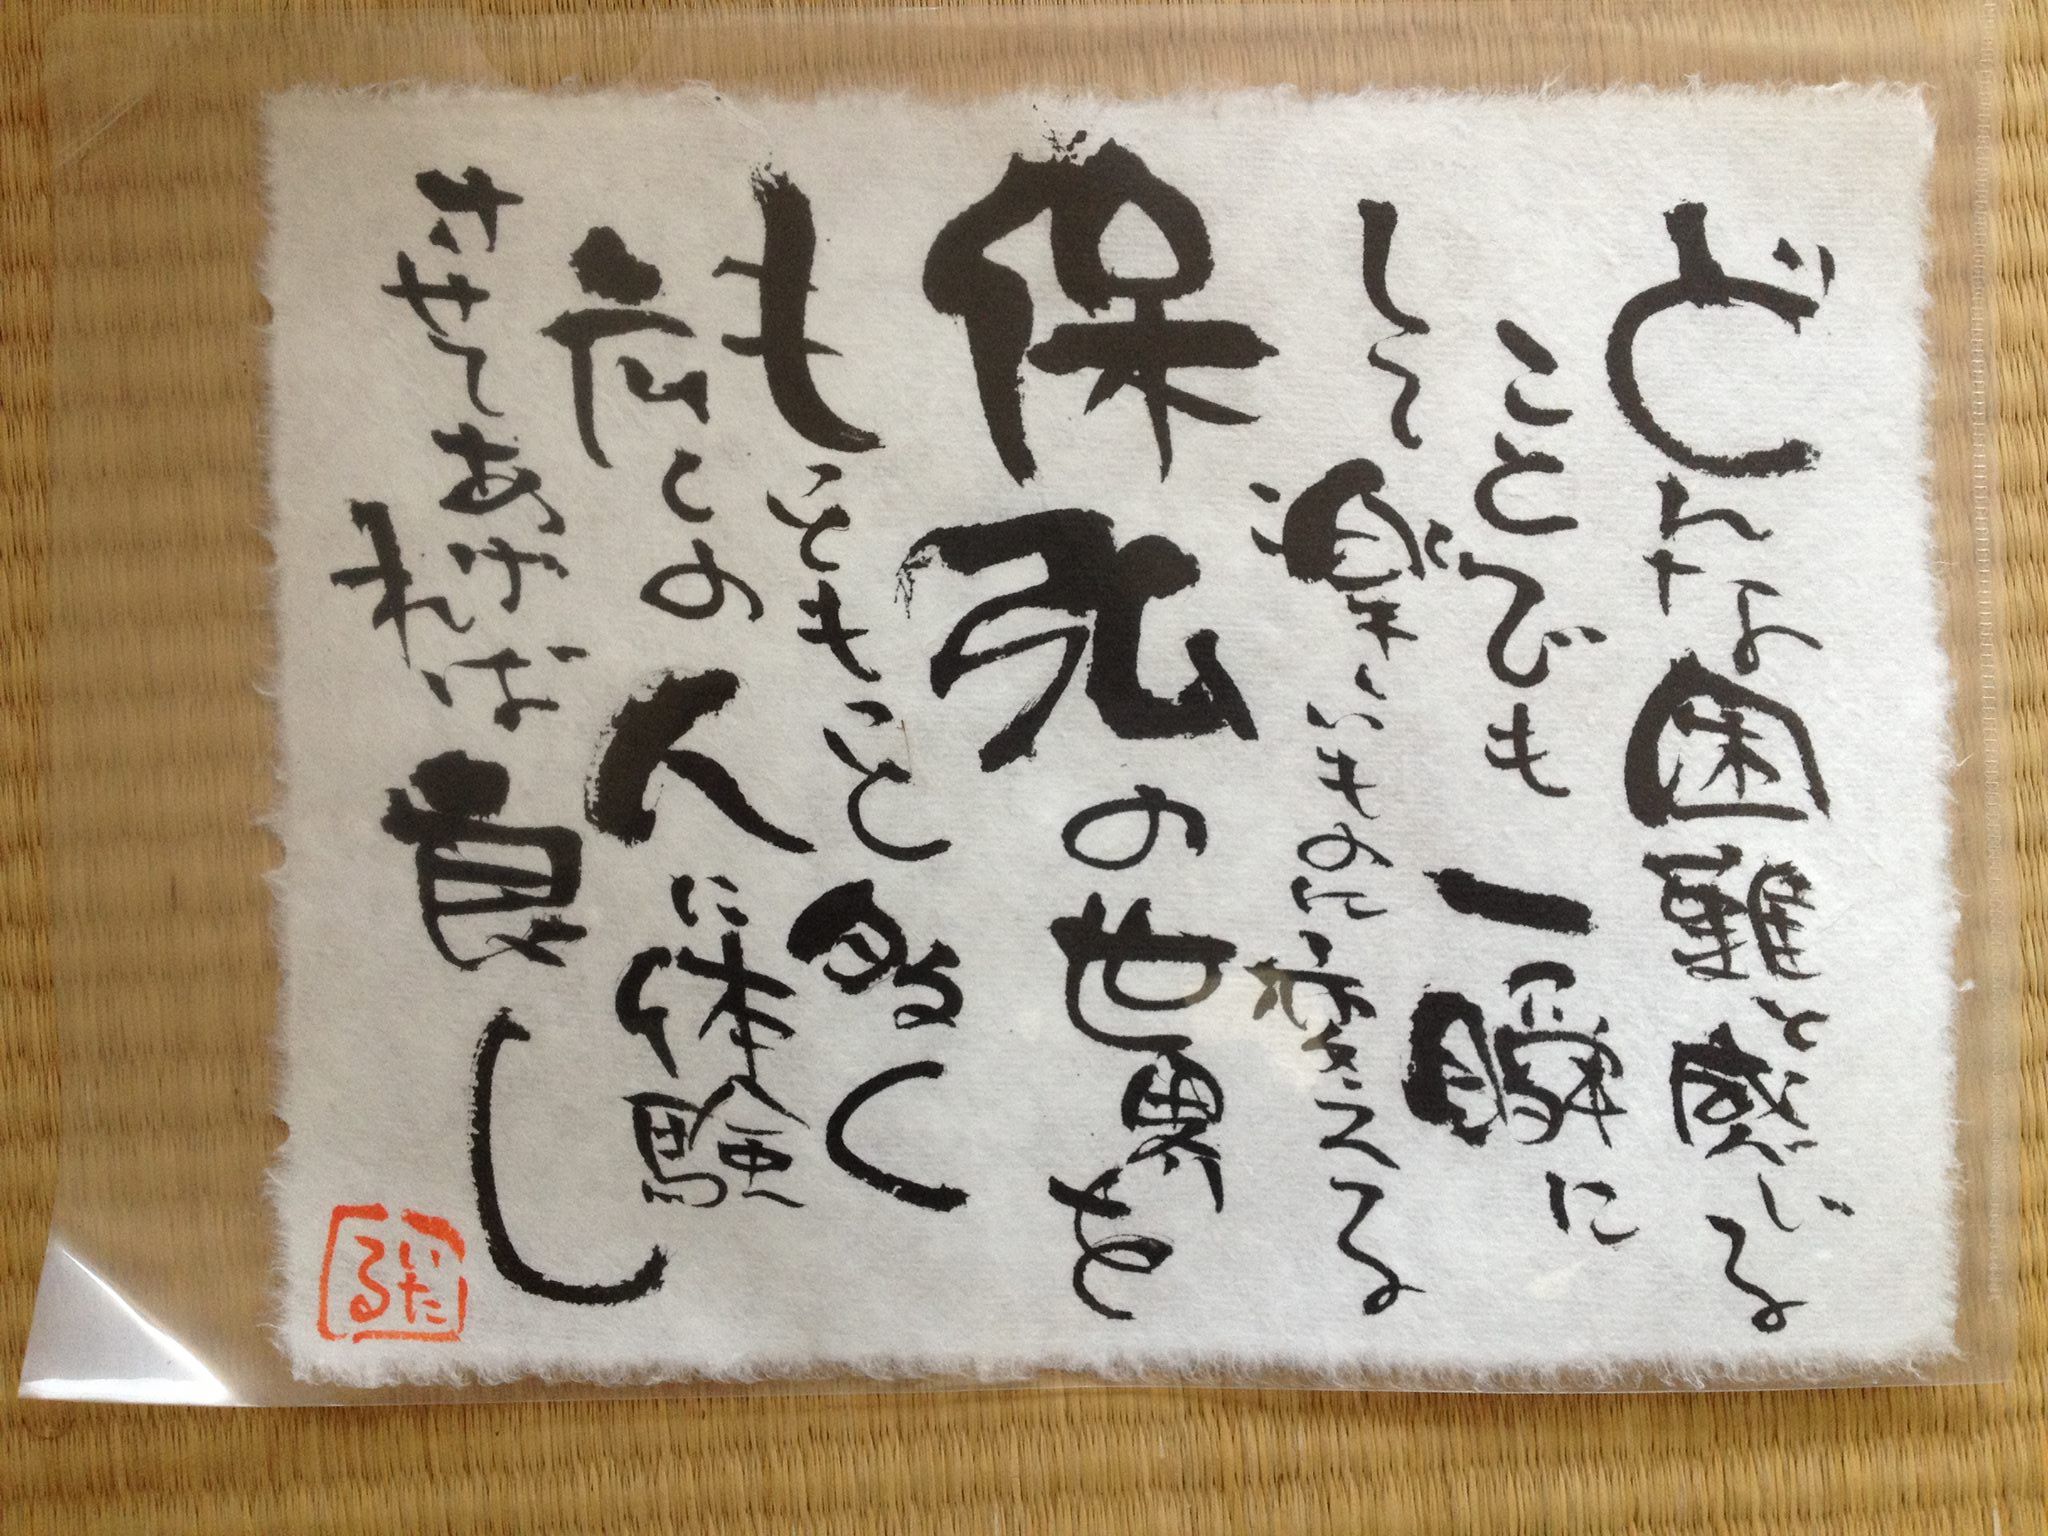 どんな困難と感じる
ことでも一瞬に
して楽しいものに変えてる
保弘の世界を
もっともっと熱く
広くの人に体験
させてあげれば良し
いたる